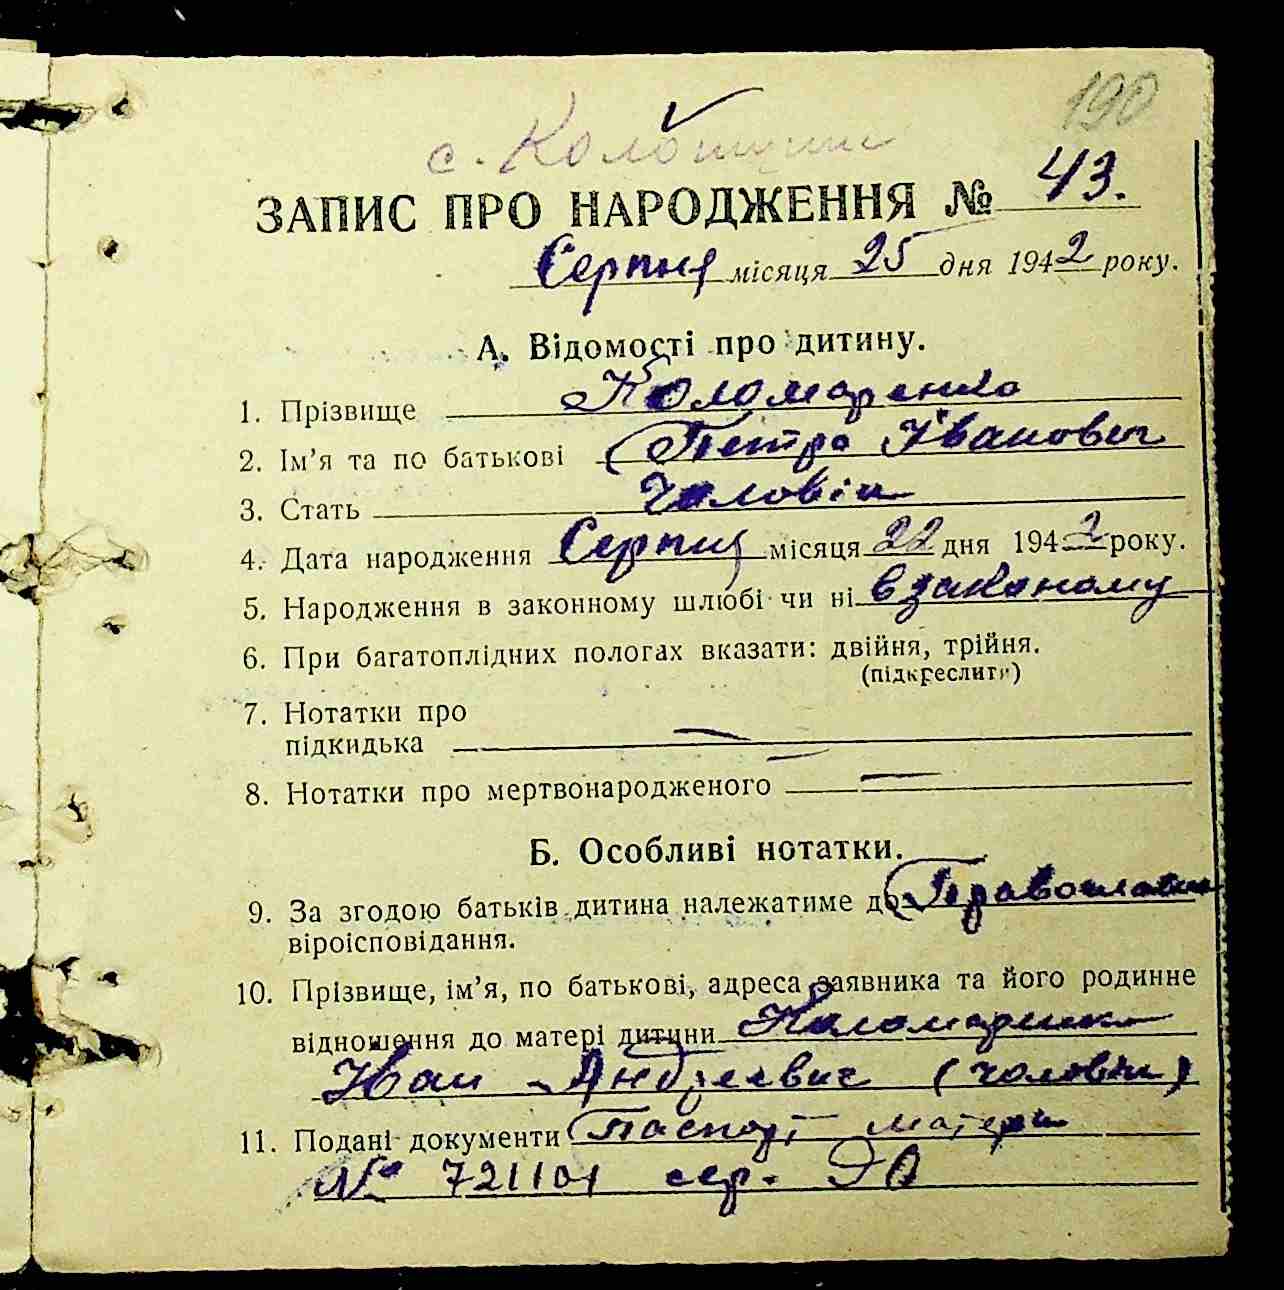 190
с. Колонщини
ЗАПИС ПРО НАРОДЖЕННЯ № 43.
Серпня місяця 25 дня 1942 року.
А. Відомості про дитину.
1. Прізвище Коломаренко
2. Ім'я та по батькові Петро Іванович
3. Стать Чоловік
4. Дата народження Серпня місяця 22 дня 1942 року.
5. Народження в законному шлюбі чи ні в законому
6. При багатоплідних пологах вказати: двійня, трійня.
(підкреслити)
7. Нотатки про
підкидька —
8. Нотатки про мертвонародженого —
Б. Особливі нотатки.
9. За згодою батьків дитина належатиме до Православн
віроісповідання.
10. Прізвище, ім'я, по батькові, адреса заявника та його родинне
відношення до матері дитини Коломаренко
Іван Андреевич (чоловік)
11. Подані документи Паспорт матери
№ 721101 сер.